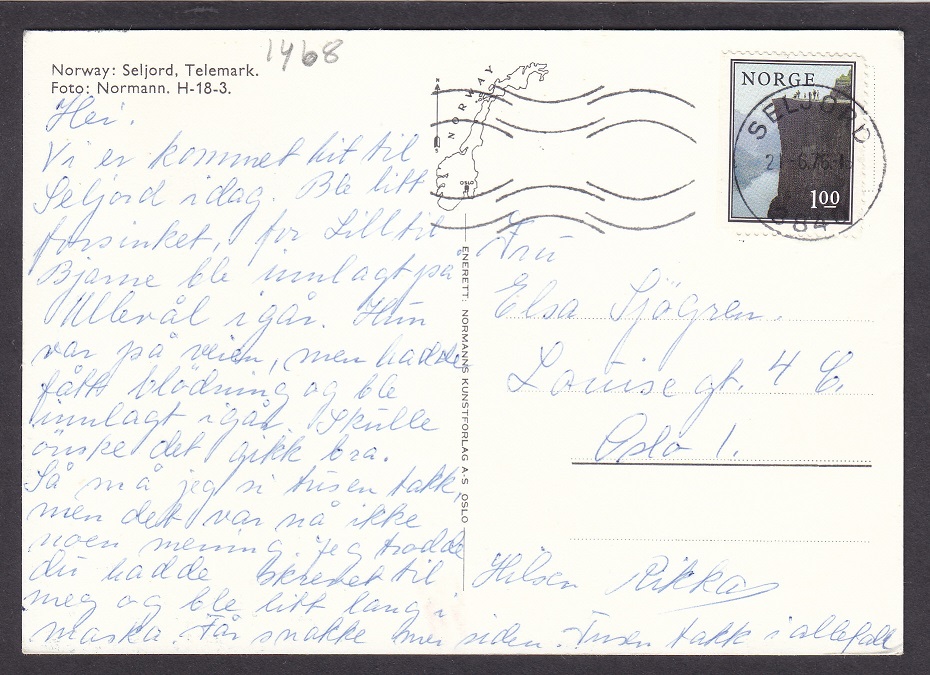 1468
Norway: Seljord, Telemark.
Foto: Normann. H-18-3.
Hei.
Vi er kommet hit til
Seljord idag. Ble litt
forsinket, for Lill til
Bjarne ble innlagt på
Ullevål igår. Hun
var på veien, men hadde
fått blödning og ble
innlagt igår. Skulle
önske det gikk bra.
Så må jeg si tusen takk,
men det var nå ikke
noen mening. Jeg trodde
du hadde skrevet til
meg og ble litt lang i
maska. Får snakke mer siden. Tusen takk i allefall
Hilsen Rikka
NORWAY
N
OSLO
ENERETT: NORMANNS KUNSTFORLAG A-S OSLO
NORGE
1.00
SELJORD
6.76
384
Fru
Elsa Sjögren.
Louisegt. 4 C.
Oslo 1.